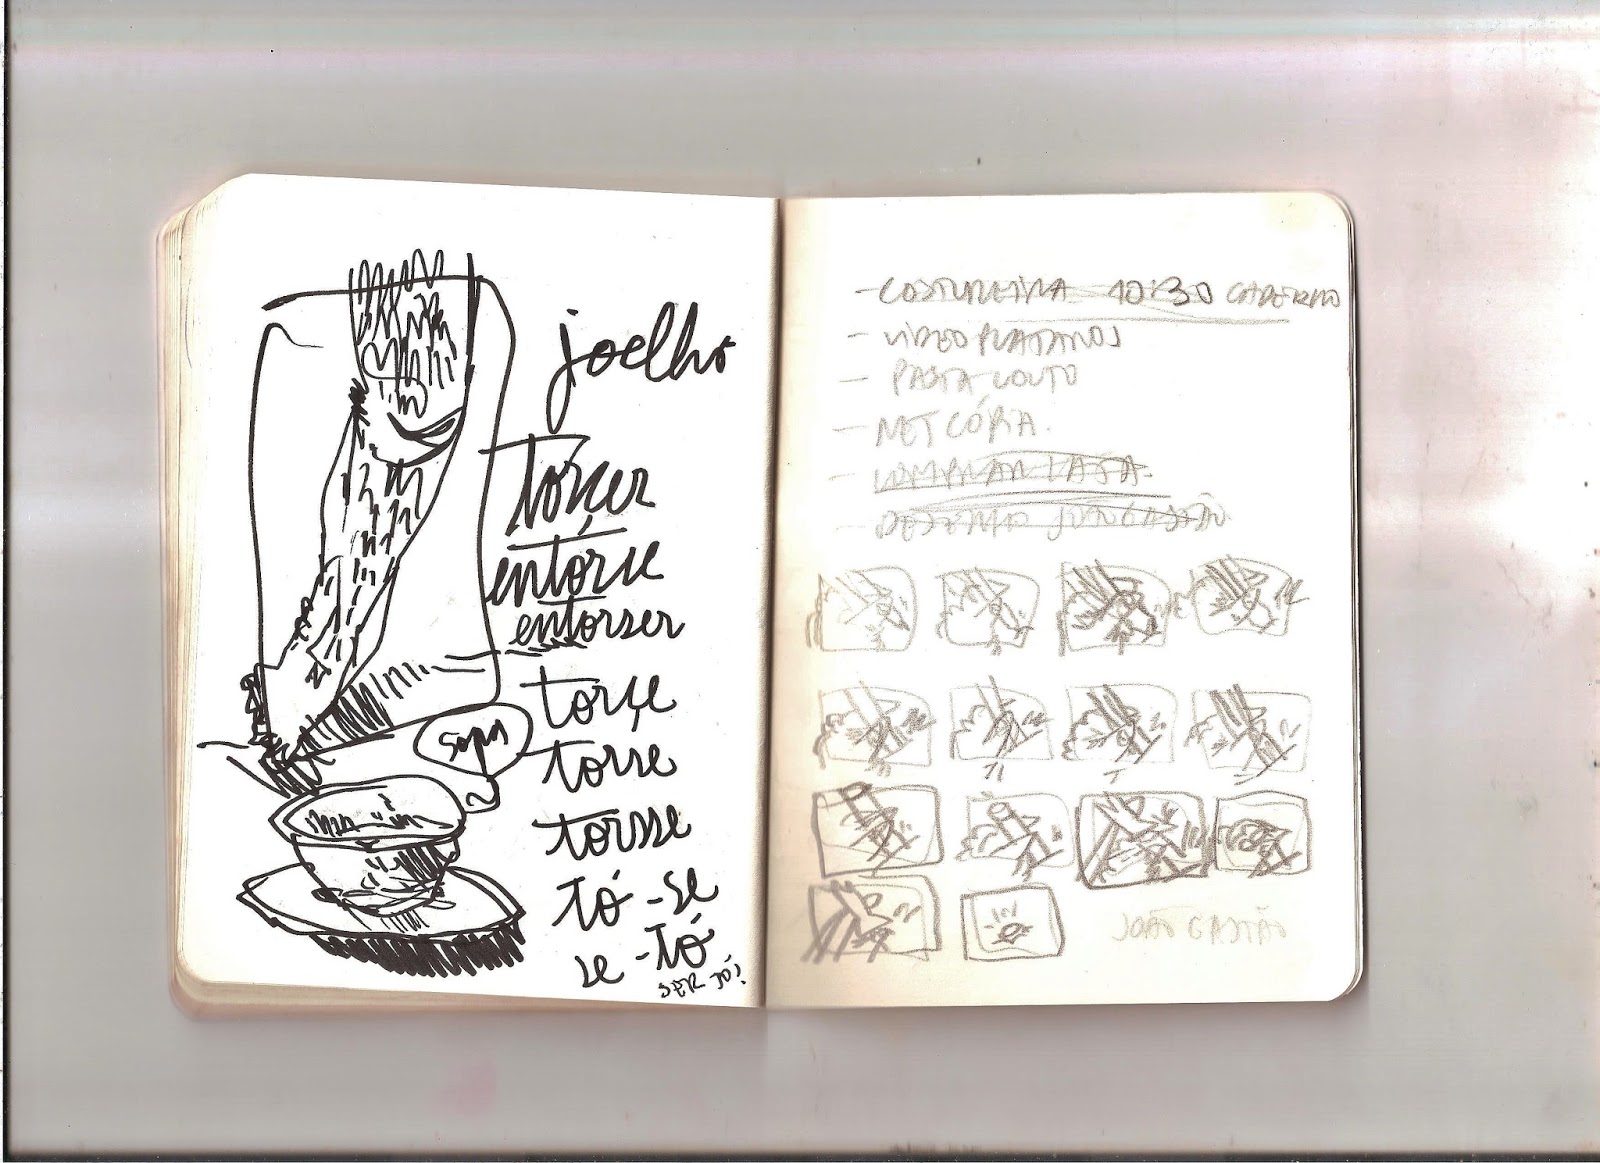 joelho
torçer
entorse
entorser
torçe
sopa
torse
torsse
tó-se
se-tó
SER TÓ!
- COSTUREIRA 10:30 CADERNO
- VIDEO PLATANOS
- PASTA COUTO
- NET CÓPIA.
- COMPRAR LATA.
- DESENHO JOÃO GASTÃO
JOÃO GASTÃO